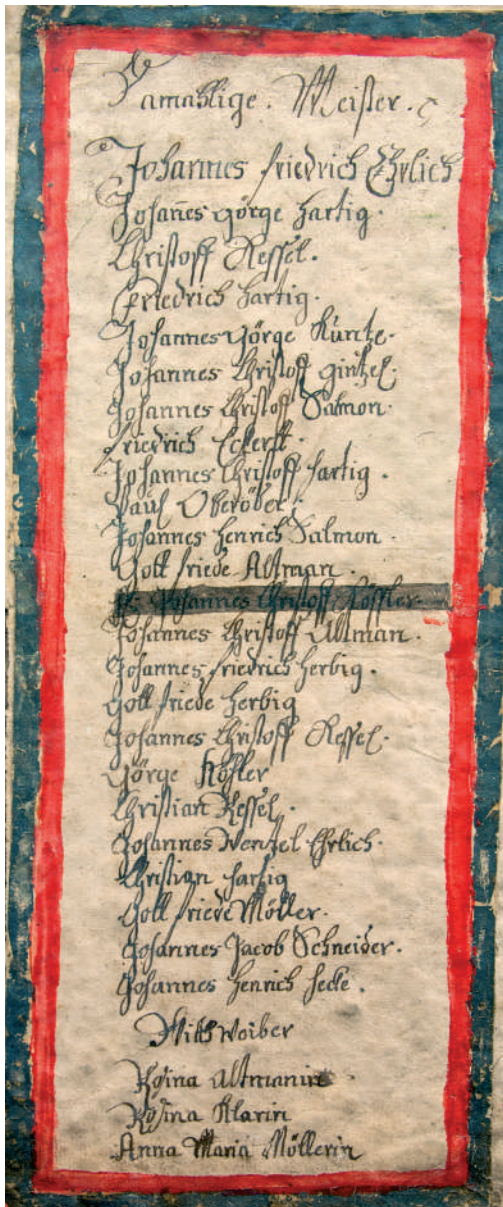 Damahlige. Meister.
Johannes friedrich Ehrlich.
Johañes görge hartig.
Christoff Ressel.
Friedrich hartig.
Johannes görge Kuntze.
Johannes Christoff gintzel.
Johannes Christoff Salmon.
friedrich Eckerst.
Johannes Christoff hartig.
Paul Oberöder.
Johannes henrich Salmon.
Gott friede Altman.
Johannes Christoff Köffler.
Johannes Christoff Altman.
Johannes friedrich herbig.
Gott friede herbig
Johannes Christoff Ressel.
Görge Köhler
Christian Ressel.
Johannes Wentzel Ehrlich.
Christian hartig
Gott friede Möller.
Johannes Jacob Schneider.
Johannes henrich hecke.
Witt Weiber
Rosina Altmanin
Rosina Klarin
Anna Maria Möllerin